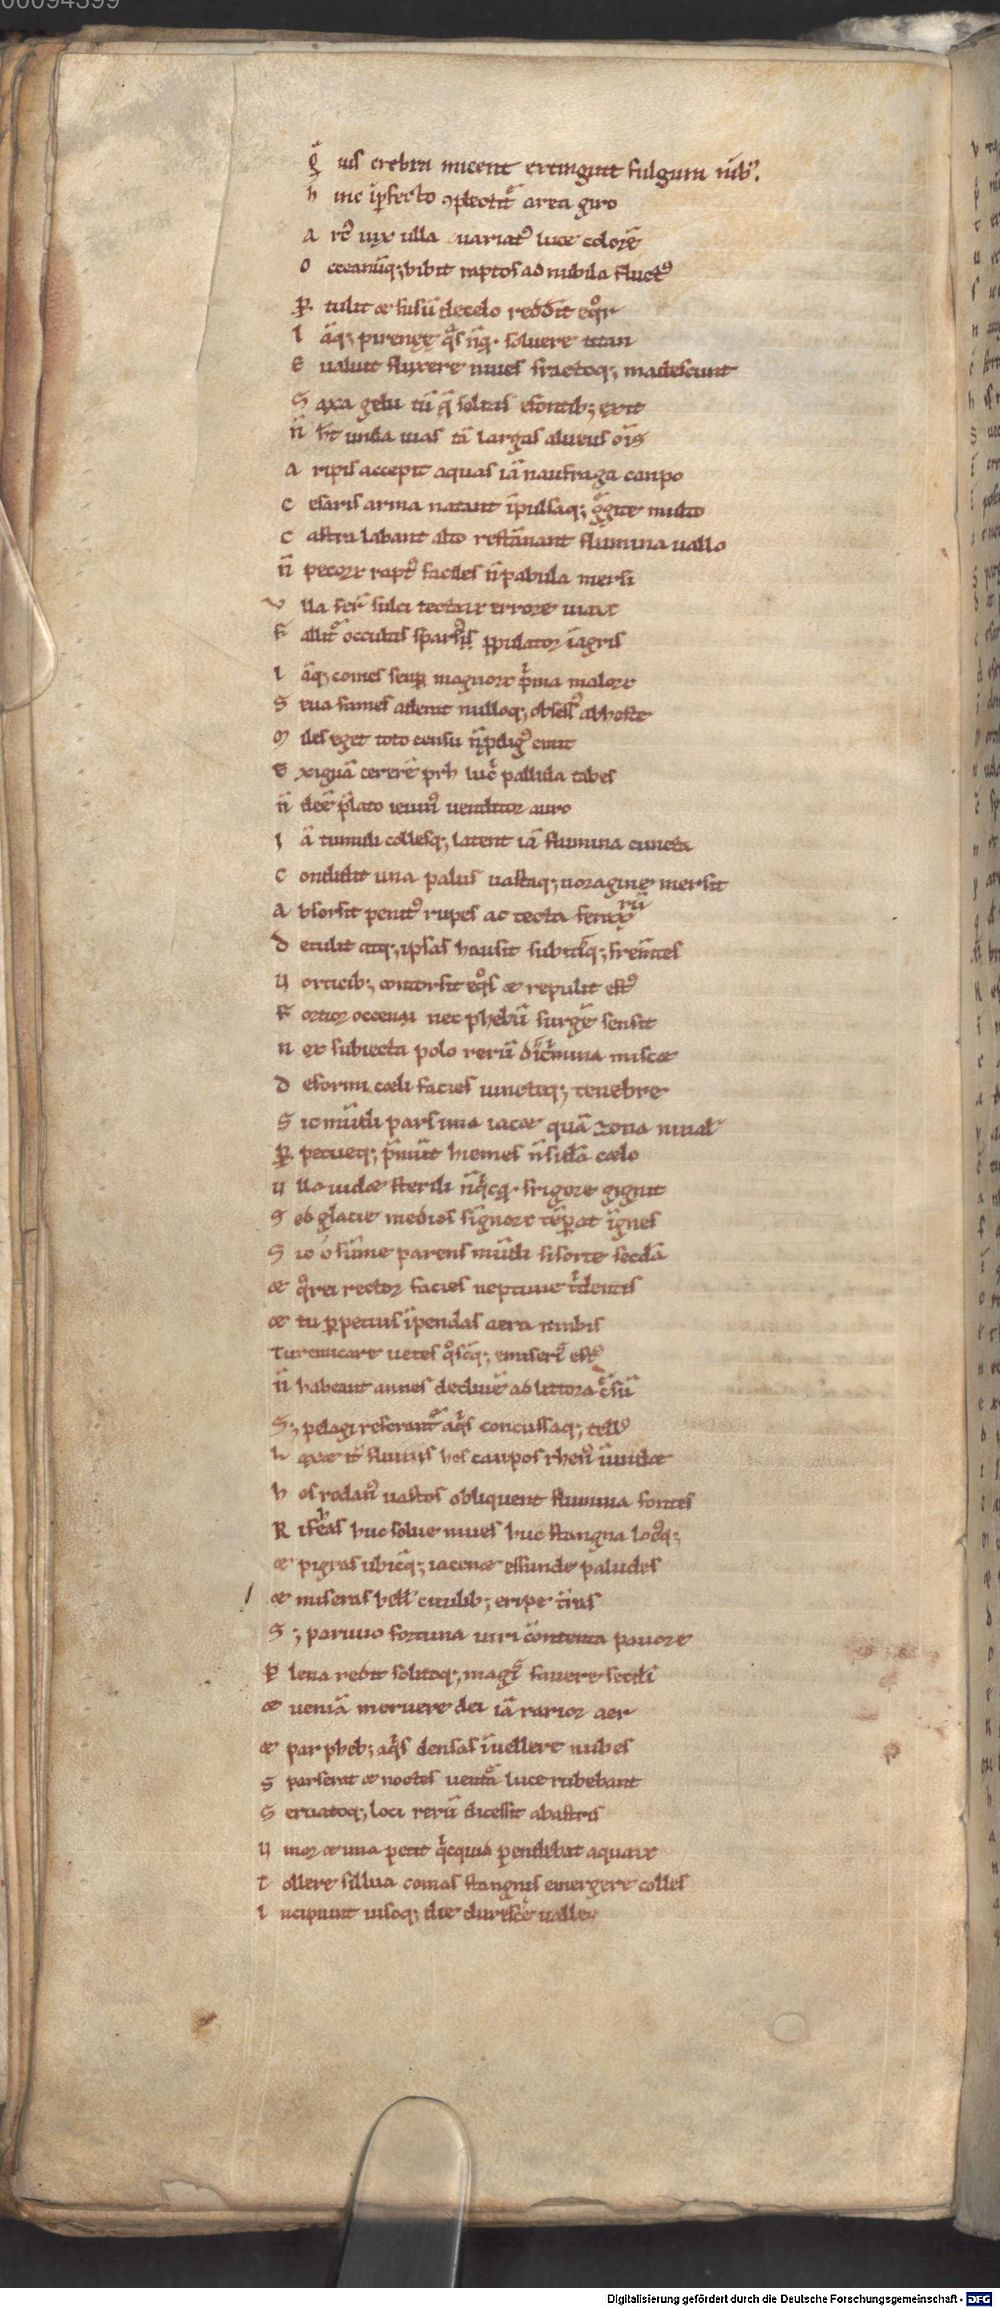 00094399
q̃ uis crebra micent extingunt fulgura nīb᷒.
h inc īperfecto ↄplectit᷑ area giro
a rc᷒ uix ulla uariat᷒ luce colorē
o cceanūq; bibit raptos ad nubila fluct᷒
ꝑ tulit & fusū de celo reddit eq̊r
I āq; pirenęę q̄s nq̄ soluere titan
E ualuit fluxere niues fractoq; madescunt
S axa gelu tū q̄ solitis e fontib; exit
ñ ht̄ unda uias tā largas alueus om̄s
a ripis accepit aquas iā naufraga canpo
C esaris arma natant īpulsaq; g̊gite multo
C astra labant alto restānant flumina uallo
ñ pecorꝛ rapt᷒ faciles ñ pabula mersi
V lla ferͭ sulci tectarꝛ errore uiarꝛ
F allit᷑ occultis sparsis ppulator ī agris
I āq; comes senꝑ magnorꝛ pͥma malorꝛ
S eua fames aderit nulloq; obsess᷒ ab hoste
M iles eget toto censu n̄ pdig᷒ emit
E xiguā cererē ꝓh lucͥ pallida tabes
ñ deē plato ieiun᷒ uenditor auro
I ā tumuli collesq; latent iā flumina cuncta
C ondidit una palus uastaq; uoragine mersit
a bsorsit penit᷒ rupes ac tecta ferarū
D etulit atq; ipsas hausit subitisq; frem̄tes
U orticib; contorsit eq̊s & repulit est᷒
F ortior occeani nec phebū surgͤe sensit
n ox subiecta polo rerū discͥmina miscet
D eformis cæli facies iunctęq; tenebre
S ic mūdi pars ima iacet quā zona niualͥ
ꝑ petueq; pͥmūt hiemes n̄ sidͣa cælo
U lla uidet sterili n̄ qͥcq̄ frigore gignit
S ed glacie medios signorꝛ tēperat ignes
S ic o sūme parens mūdi si sorte secͩa
& q̊rei rector facies neptune tͥdentis
& tu ꝑpetuis īpendas aera nimbis
Tu remeare uetes q̊scūq; emiserͥ est᷒
ñ habeant annes decliuē ad littora cͬsū
S; pelagi referant᷑ aqͥs concussaq; tell᷒
h axet itͥ fluuiis hos canpos rhen᷒ inundet
h os rodan᷒ uastos obliquent flumina fontes
R ifeas huc solue niues huc stangna locūq;
& pigras ubicūq; iacent effunde paludes
& miseras bellͥ ciuilib; eripe t̄ras
S; paruuo fortuna uiri contenta pauore
P lena redit solitoq; magͥ fauere secͩi
& ueniā meruere dei iā rarior aer
& par pheb; aqͥs densas ī uellere nubes
S parserat & noctes uentͣa luce rubebant
S eruatoq; loci rerū dicessit ab astris
U mor & ima petit qͥcquid pendebat aquarꝛ
T ollere sillua comas stangnis emergere colles
I ncipiunt uisoq; die durescͤe ualles
Digitalisierung gefördert durch die Deutsche Forschungsgemeinschaft - DFG